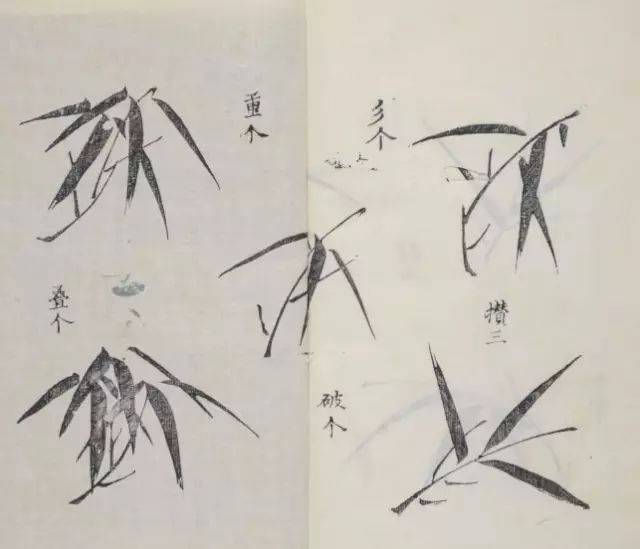 个
攢三
破个
重个
叠个